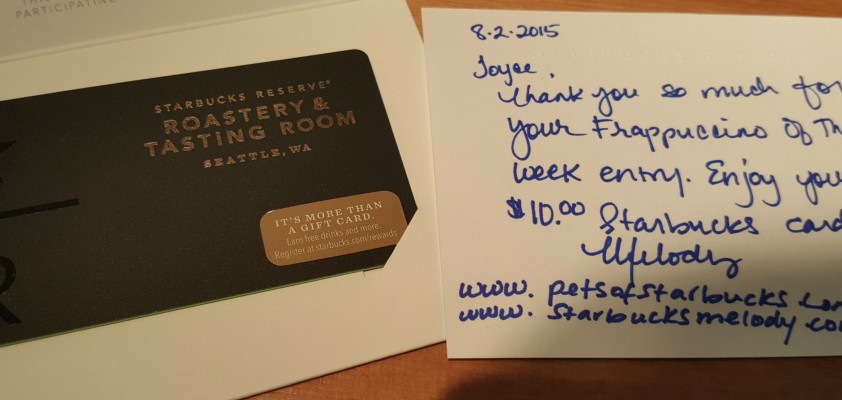 PARTICIPATING
STARBUCKS RESERVE®
ROASTERY &
TASTING ROOM
SEATTLE, WA
IT'S MORE THAN
A GIFT CARD.
Earn free drinks and more.
Register at starbucks.com/rewards
R
8.2.2015
Joyce,
Thank you so much for
your Frappuccino Of Th
week entry. Enjoy you
$10.00 Starbucks card
Melody
www.petsofstarbucks.com
www.starbucksmelody.co